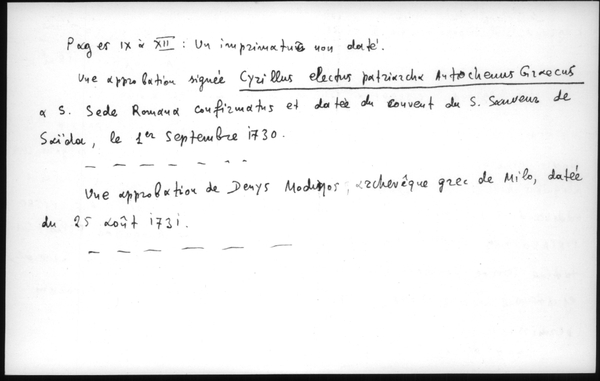 Pages IX à XII : Un imprimatur non daté.
Une approbation signée Cyrillus electus patriarcha Antochenus Graecus
a S. Sede Romana confirmatus et datée du couvent du S. Sauveur de
Saïda, le 1er Septembre 1730.
— — — — - - -
Une approbation de Denys Modinos, archevêque grec de Milo, datée
du 25 août 1731.
— — — — — —